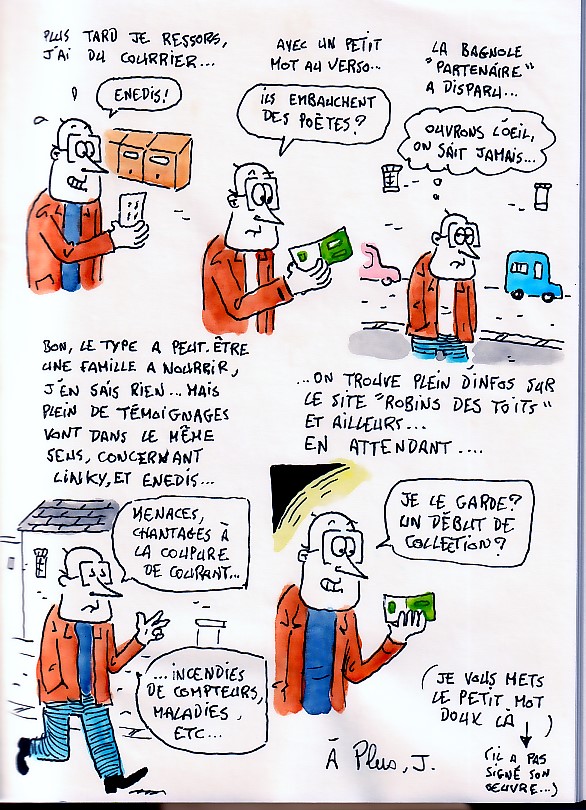 PLUS TARD JE RESSORS,
J'AI DU COURRIER...
ENEDIS!
AVEC UN PETIT
MOT AU VERSO...
ILS EMBAUCHENT
DES POÈTES?
LA BAGNOLE
"PARTENAIRE"
A DISPARU...
OUVRONS L'OEIL,
ON SAIT JAMAIS...
BON, LE TYPE A PEUT-ÊTRE
UNE FAMILLE A NOURRIR,
J'EN SAIS RIEN... MAIS
PLEIN DE TÉMOIGNAGES
VONT DANS LE MÊME
SENS, CONCERNANT
LINKY, ET ENEDIS...
MENACES,
CHANTAGES À
LA COUPURE
DE COURANT...
...INCENDIES
DE COMPTEURS,
MALADIES,
ETC...
...ON TROUVE PLEIN D'INFOS SUR
LE SITE "ROBINS DES TOITS"
ET AILLEURS...
EN ATTENDANT....
JE LE GARDE?
UN DÉBUT DE
COLLECTION?
(JE VOUS METS
LE PETIT MOT
DOUX LÀ)
À Plus, J.
(IL A PAS
SIGNÉ SON
OEUVRE...)